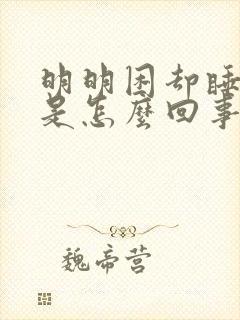 明明困却睡
是怎麼回事
魏帝营